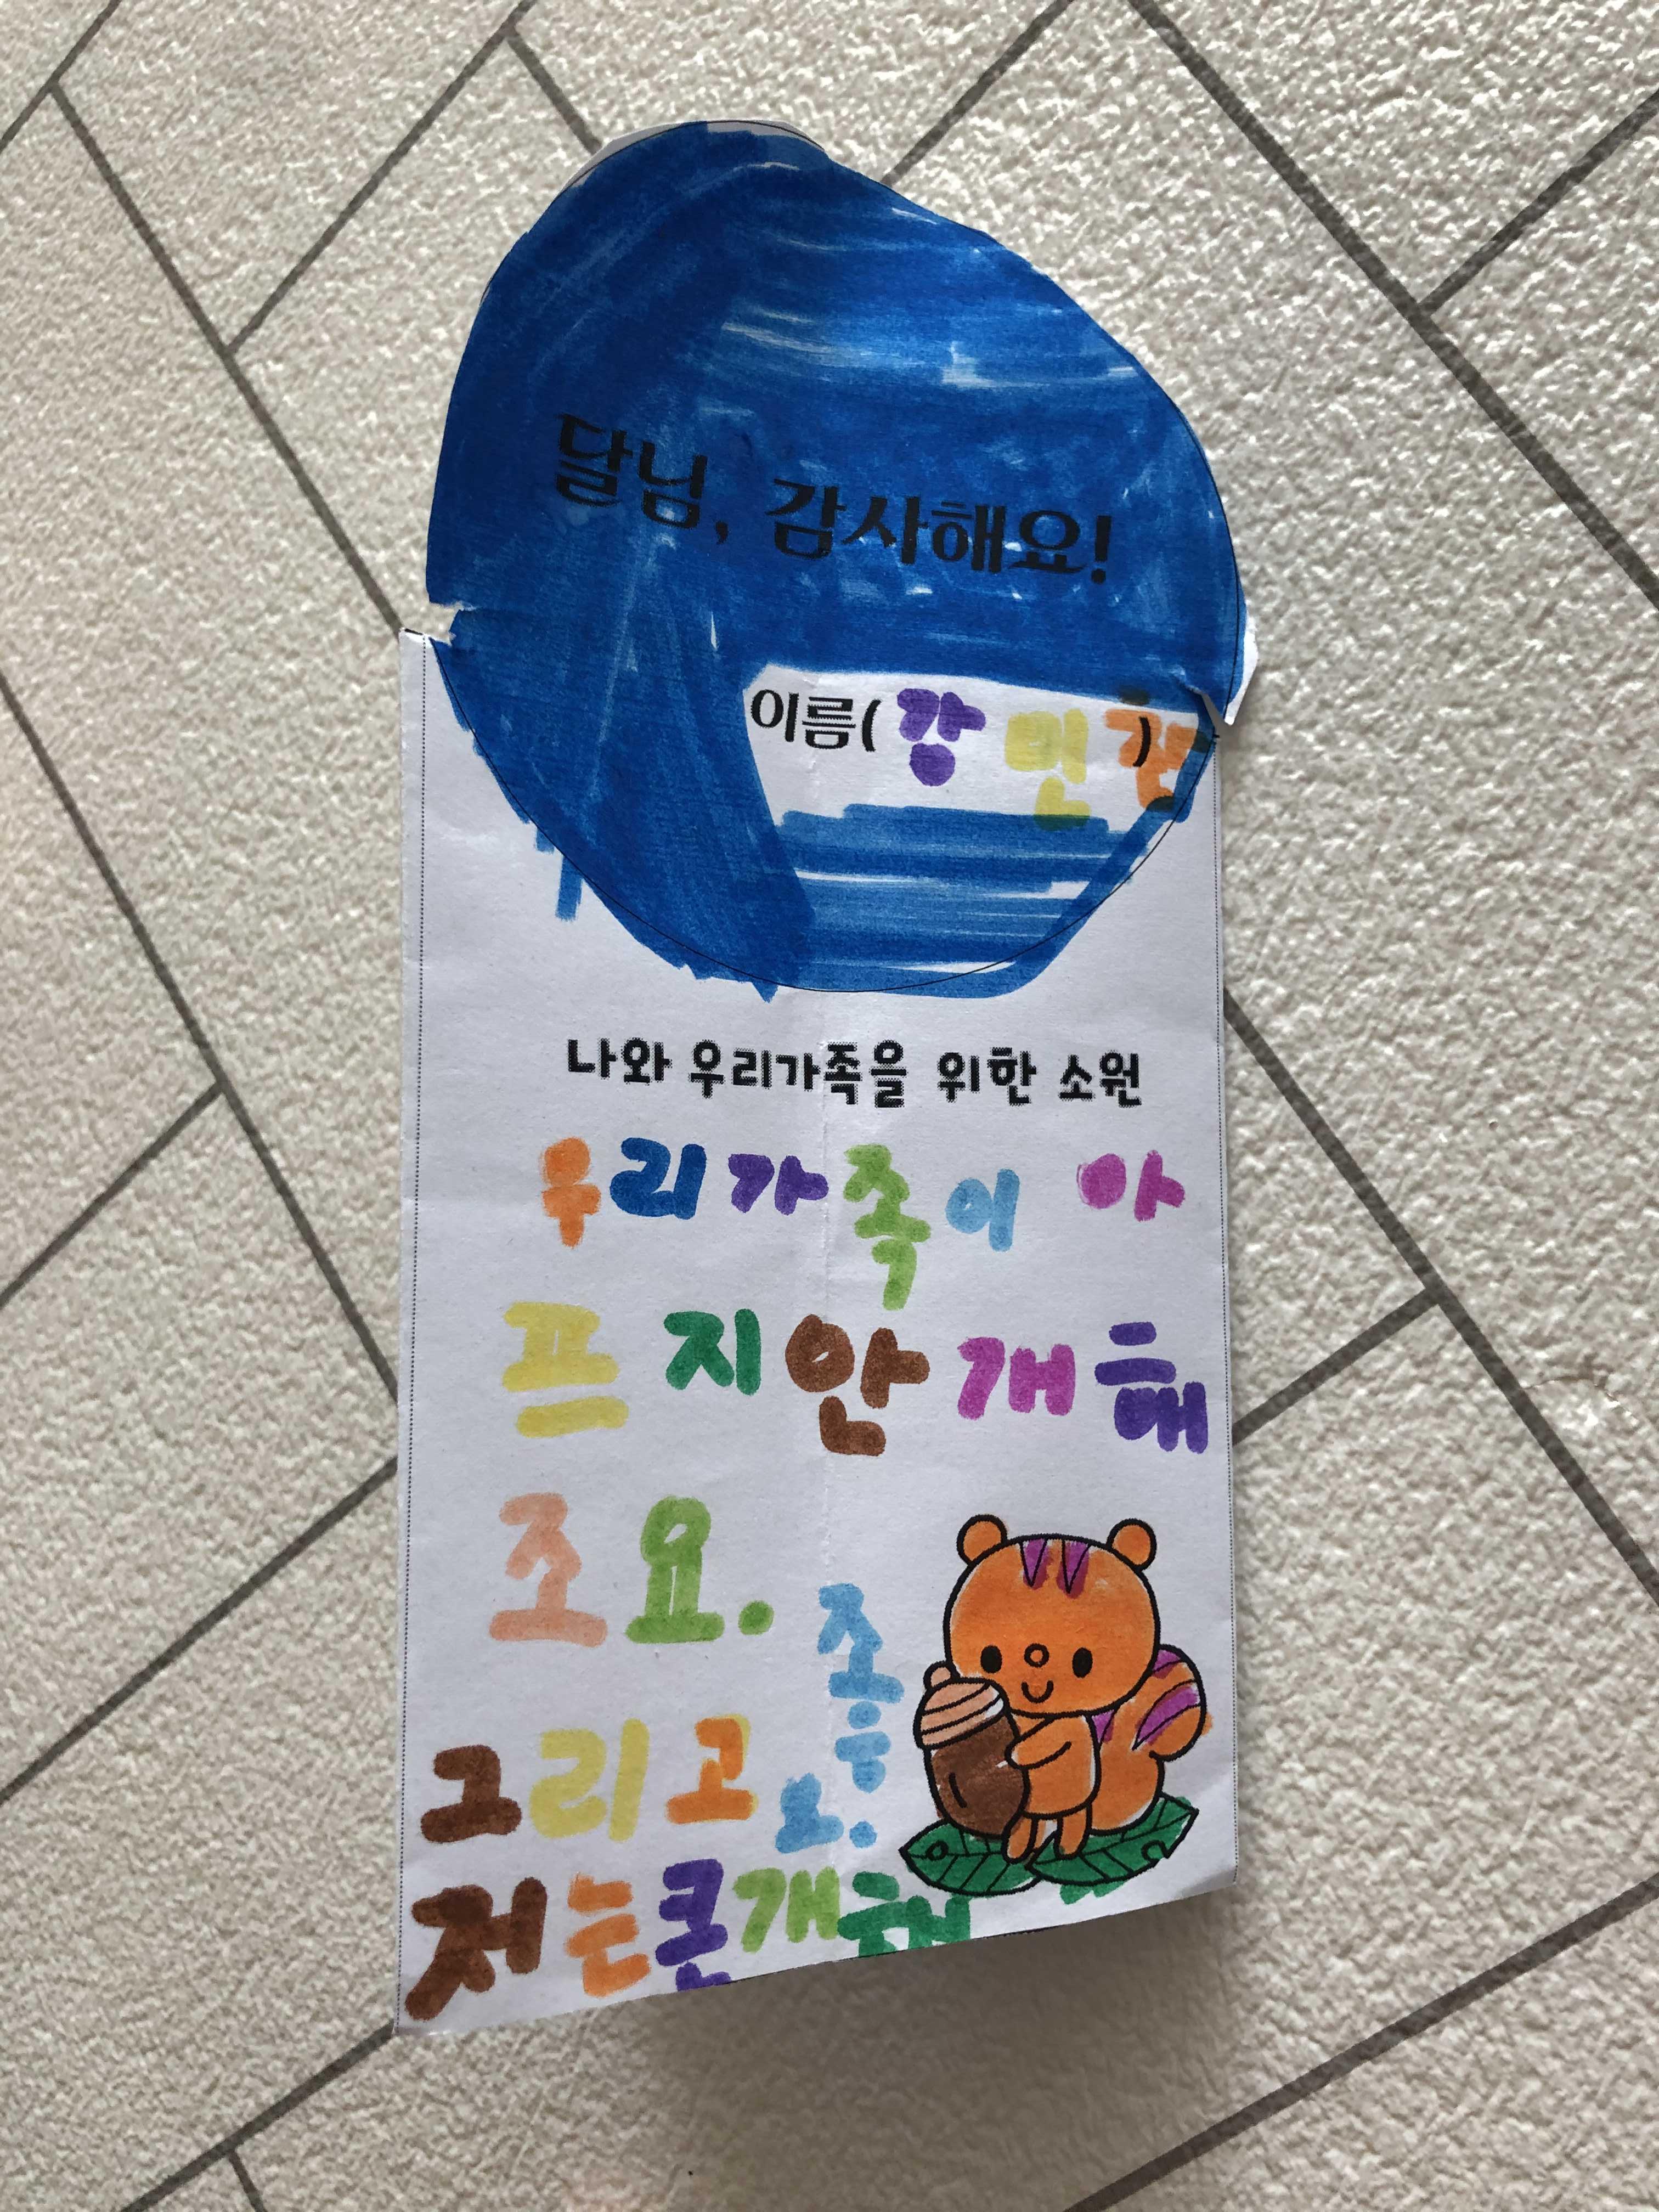 달님, 감사해요!
이름(강민)
나와 우리가족을 위한 소원
우리가족이 아
프지안개해
조요.
그리고
저는큰개해